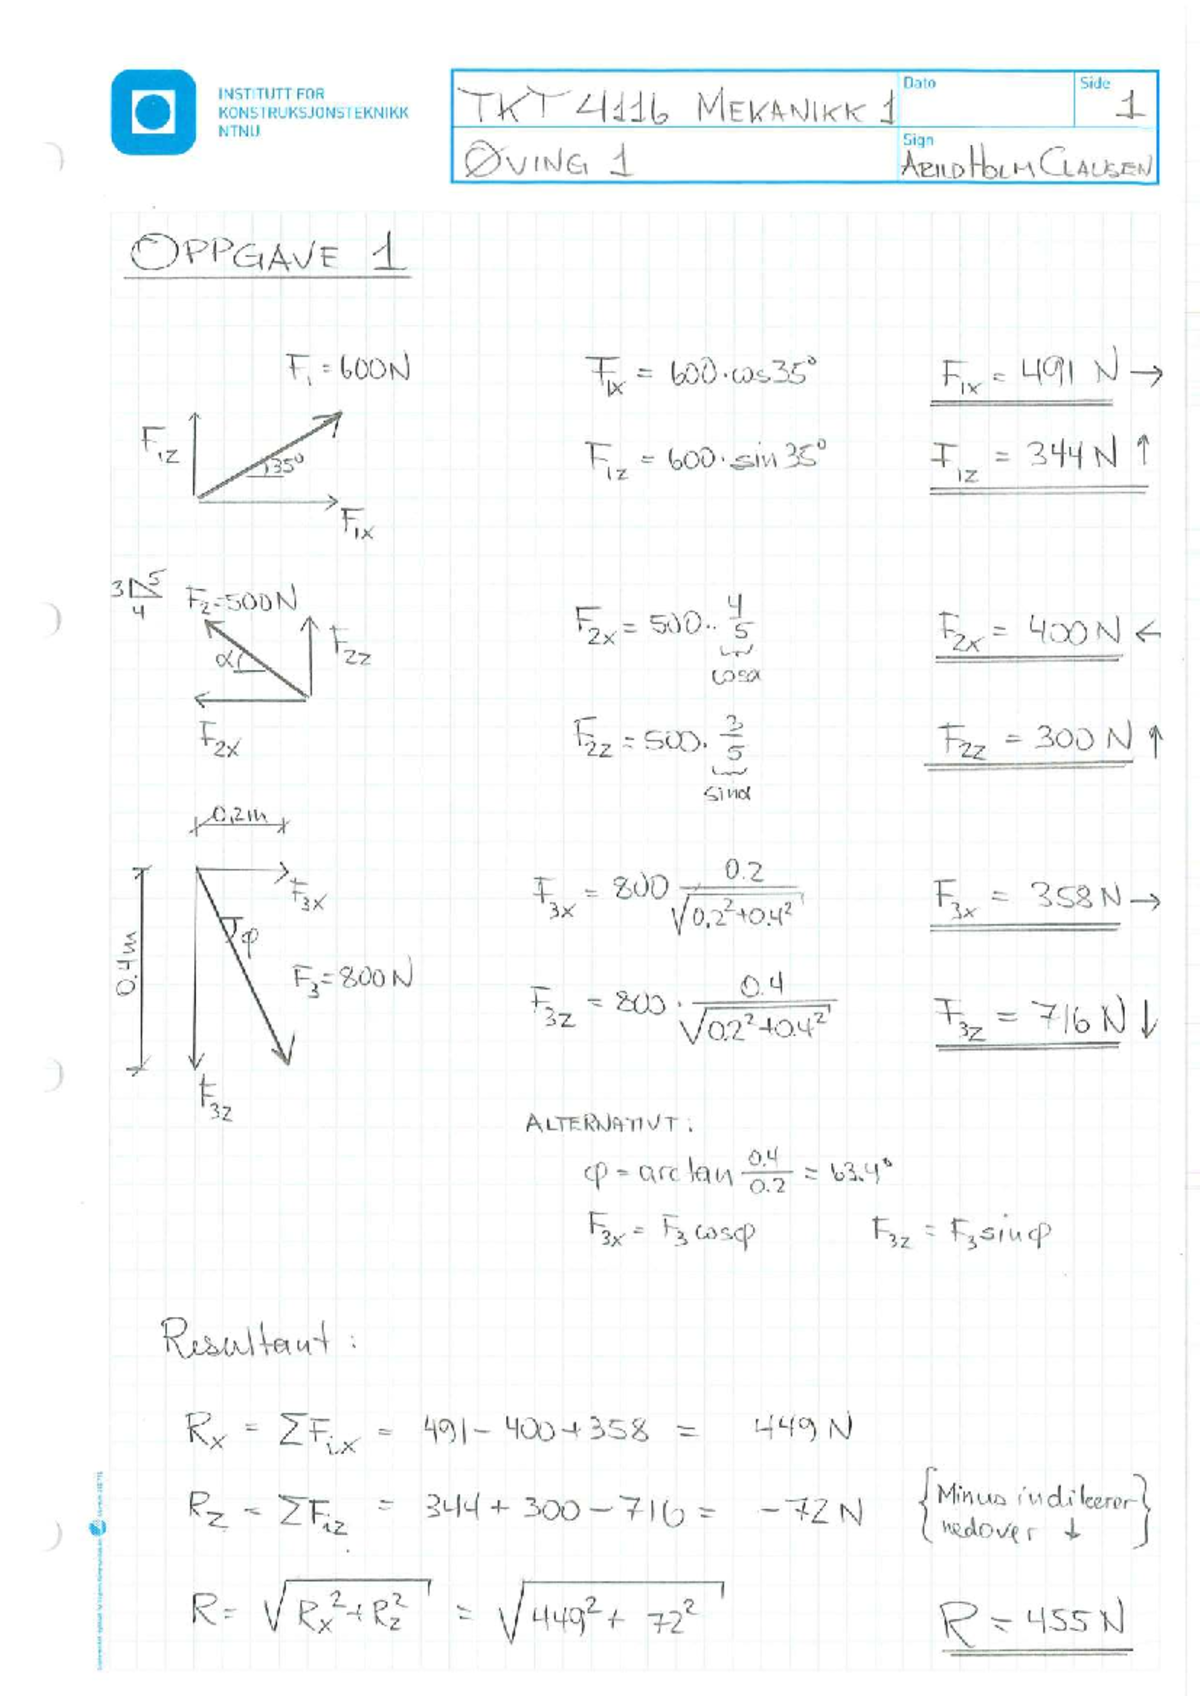 INSTITUTT FOR
KONSTRUKSJONSTEKNIKK
NTNU
TKT 4116 MEKANIKK 1
Dato
Side
1
ØVING 1
Sign
ARILD HOLM CLAUSEN
OPPGAVE 1
F₁ = 600N
F₁x = 600·cos35° F₁x = 491 N →
F₁z
35°
F₁z = 600·sin35° F₁z = 344 N ↑
F₁x
3 5
4
F₂=500N
F₂z
α
F₂x = 500·· 4/5 F₂x = 400 N ←
cosα
F₂x
F₂z = 500· 3/5 F₂z = 300 N ↑
sinα
0,2m
F₃x
F₃x = 800 0.2/√(0.2²+0.4²) F₃x = 358 N →
φ
0.4m
F₃=800N
F₃z = 800 · 0.4/√(0.2²+0.4²) F₃z = 716 N ↓
F₃z
ALTERNATIVT:
φ = arctan 0.4/0.2 = 63.4°
F₃x = F₃ cosφ F₃z = F₃ sinφ
Resultant:
Rx = ΣFix = 491 - 400 + 358 = 449 N
Rz = ΣFiz = 344 + 300 - 716 = -72 N
{Minus indikerer
nedover ↓}
R = √(Rx²+Rz²) = √(449² + 72²) R = 455 N